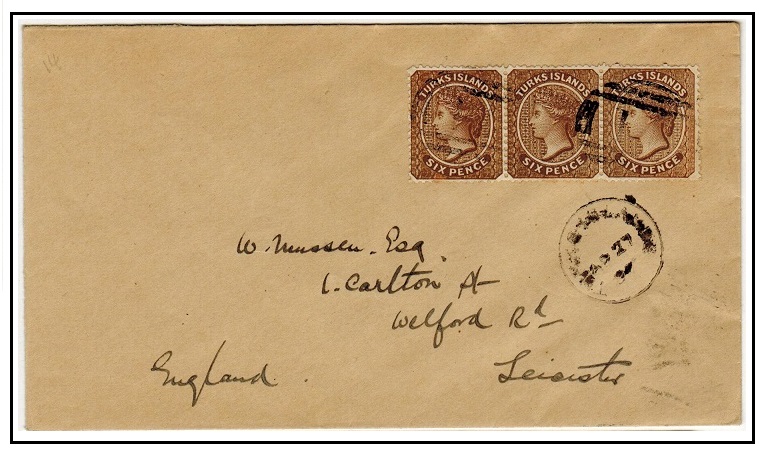 14
TURKS ISLANDS TURKS ISLANDS TURKS ISLANDS
SIX PENCE SIX PENCE SIX PENCE
27
W. Mussen. Esq
1. Carlton St
Welford Rd
Leicester
England.